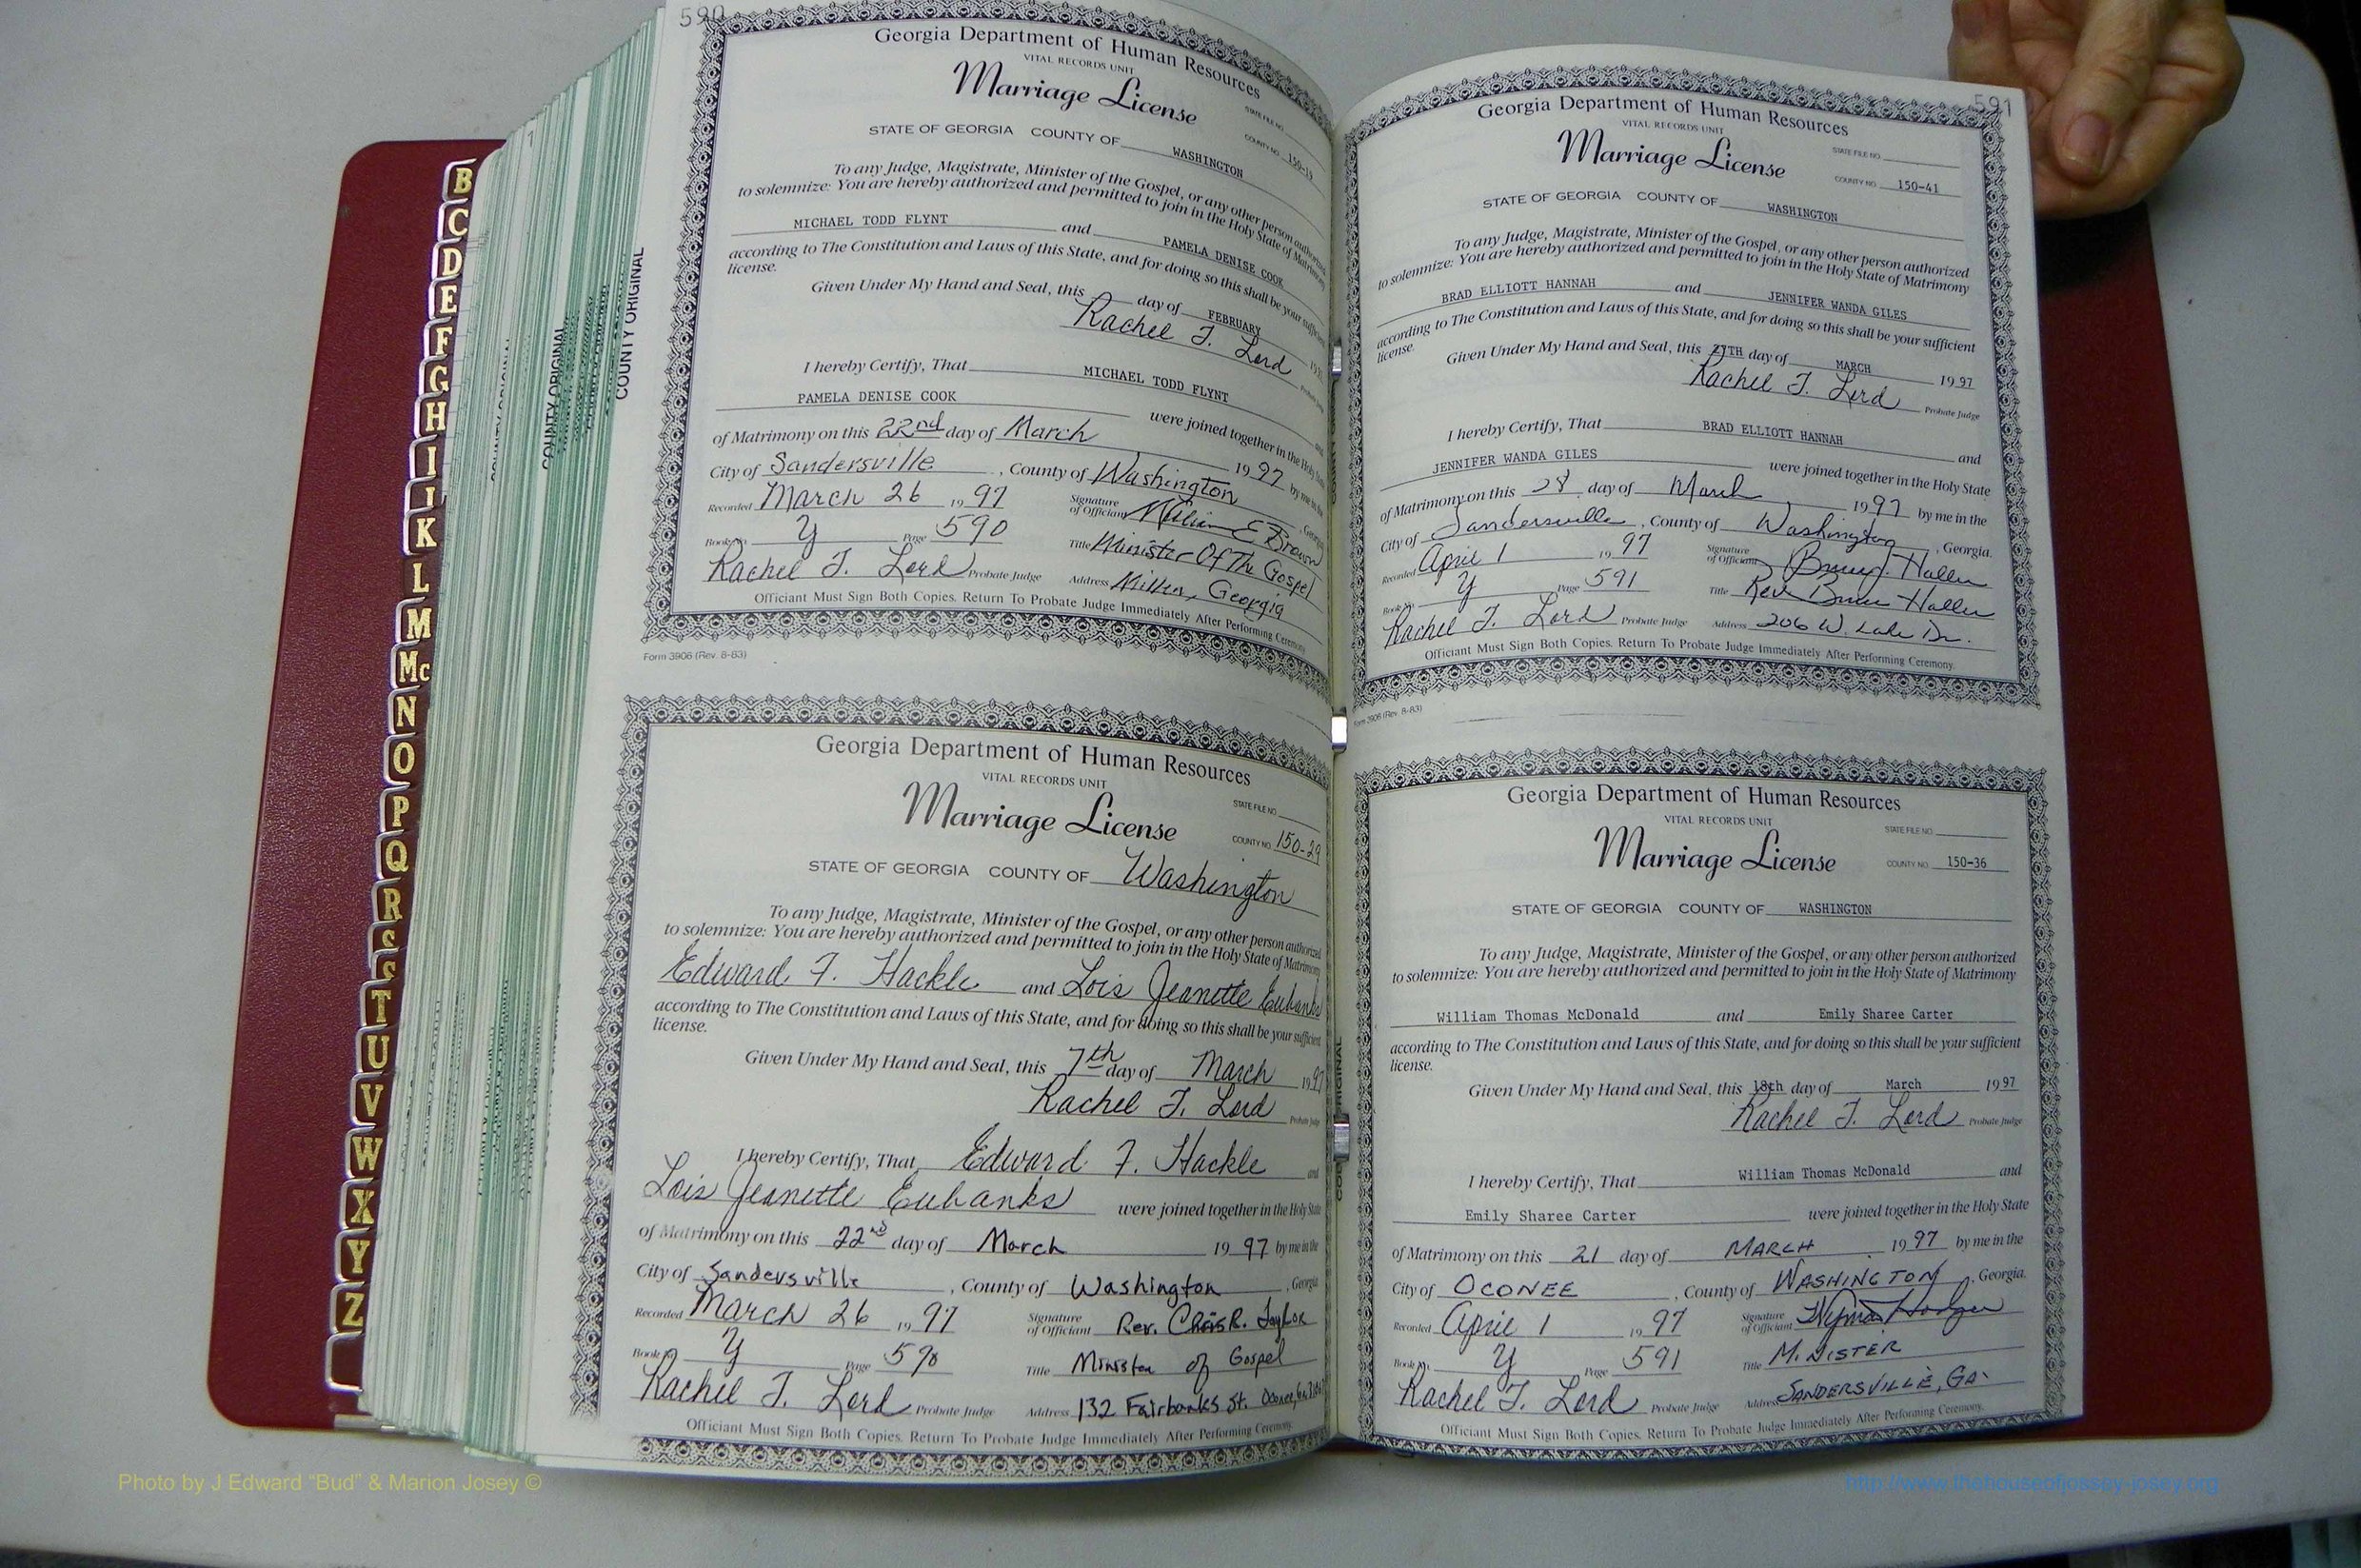 B
C
D
E
F
G
H
I
K
L
M
Mc
N
O
P
Q
R
S
T
U
V
W
X
Y
Z
COUNTY ORIGINAL
COUNTY ORIGINAL
590
Georgia Department of Human Resources
VITAL RECORDS UNIT
Marriage License
STATE FILE NO.
COUNTY NO.
STATE OF GEORGIA COUNTY OF WASHINGTON
To any Judge, Magistrate, Minister of the Gospel, or any other person authorized
to solemnize: You are hereby authorized and permitted to join in the Holy State of Matrimony
MICHAEL TODD FLYNT and PAMELA DENISE COOK
according to The Constitution and Laws of this State, and for doing so this shall be your sufficient
license.
Given Under My Hand and Seal, this day of FEBRUARY
Rachel T. Lord
I hereby Certify, That MICHAEL TODD FLYNT
PAMELA DENISE COOK were joined together in the Holy State
of Matrimony on this 22nd day of March 1997 by me in the
City of Sandersville, County of Washington, Georgia
Recorded March 26 1997 Signature of Officiant E Brown
Book No. Y Page 590 Title Minister Of The Gospel
Rachel T. Lord Probate Judge Address Millen, Georgia
Officiant Must Sign Both Copies. Return To Probate Judge Immediately After Performing Ceremony.
Form 3906 (Rev. 8-83)
Georgia Department of Human Resources
VITAL RECORDS UNIT
Marriage License
STATE FILE NO.
COUNTY NO. 150-29
STATE OF GEORGIA COUNTY OF Washington
To any Judge, Magistrate, Minister of the Gospel, or any other person authorized
to solemnize: You are hereby authorized and permitted to join in the Holy State of Matrimony
Edward F. Hackle and Lois Jeanette Eubanks
according to The Constitution and Laws of this State, and for doing so this shall be your sufficient
license.
Given Under My Hand and Seal, this 7th day of March 1997
Rachel T. Lord Probate Judge
I hereby Certify, That Edward F. Hackle and
Lois Jeanette Eubanks were joined together in the Holy State
of Matrimony on this 22nd day of March 1997 by me in the
City of Sandersville, County of Washington, Georgia
Recorded March 26, 1997 Signature of Officiant Rev. Chris R. Taylor
Book No. Y Page 590 Title Minister of Gospel
Rachel T. Lord Probate Judge Address 132 Fairbanks St. Oconee, Ga.
Officiant Must Sign Both Copies. Return To Probate Judge Immediately After Performing Ceremony.
591
Georgia Department of Human Resources
VITAL RECORDS UNIT
Marriage License
STATE FILE NO.
COUNTY NO. 150-41
STATE OF GEORGIA COUNTY OF WASHINGTON
To any Judge, Magistrate, Minister of the Gospel, or any other person authorized
to solemnize: You are hereby authorized and permitted to join in the Holy State of Matrimony
BRAD ELLIOTT HANNAH and JENNIFER WANDA GILES
according to The Constitution and Laws of this State, and for doing so this shall be your sufficient
license.
Given Under My Hand and Seal, this 27TH day of MARCH 1997
Rachel T. Lord Probate Judge
I hereby Certify, That BRAD ELLIOTT HANNAH and
JENNIFER WANDA GILES were joined together in the Holy State
of Matrimony on this 28 day of March 1997 by me in the
City of Sandersville, County of Washington, Georgia.
Recorded April 1 1997 Signature of Officiant
Book No. Y Page 591 Title Rev.
Rachel T. Lord Probate Judge Address 206 W. Lake Dr.
Officiant Must Sign Both Copies. Return To Probate Judge Immediately After Performing Ceremony.
Form 3906 (Rev. 8-83)
Georgia Department of Human Resources
VITAL RECORDS UNIT
Marriage License
STATE FILE NO.
COUNTY NO. 150-36
STATE OF GEORGIA COUNTY OF WASHINGTON
To any Judge, Magistrate, Minister of the Gospel, or any other person authorized
to solemnize: You are hereby authorized and permitted to join in the Holy State of Matrimony
William Thomas McDonald and Emily Sharee Carter
according to The Constitution and Laws of this State, and for doing so this shall be your sufficient
license.
Given Under My Hand and Seal, this 18th day of March 1997
Rachel T. Lord Probate Judge
I hereby Certify, That William Thomas McDonald and
Emily Sharee Carter were joined together in the Holy State
of Matrimony on this 21 day of MARCH 1997 by me in the
City of OCONEE, County of WASHINGTON, Georgia.
Recorded April 1 1997 Signature of Officiant
Book No. Y Page 591 Title MINISTER
Rachel T. Lord Probate Judge Address SANDERSVILLE, GA.
Officiant Must Sign Both Copies. Return To Probate Judge Immediately After Performing Ceremony.
Photo by J Edward “Bud” & Marion Josey ©
http://www.thehouseofjossey-josey.org